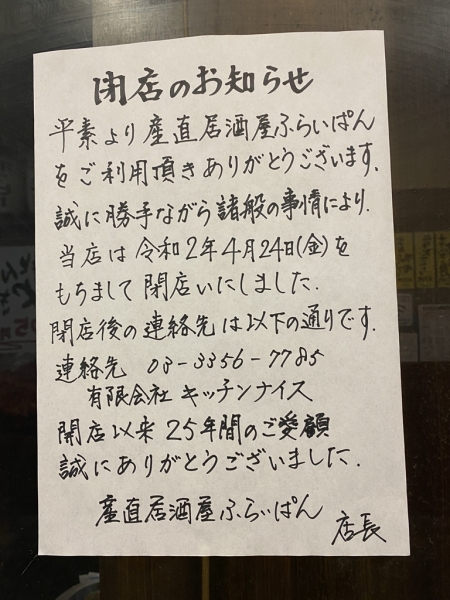 閉店のお知らせ
平素より産直居酒屋ふらいぱん
をご利用頂きありがとうございます.
誠に勝手ながら諸般の事情により.
当店は令和2年4月24日(金)を
もちまして閉店いにしました.
閉店後の連絡先は以下の通りです.
連絡先 03-3356-7785
有限会社キッチンナイス
開店以来25年間のご愛顧
誠にありがとうございました.
産直居酒屋ふらいぱん
店長